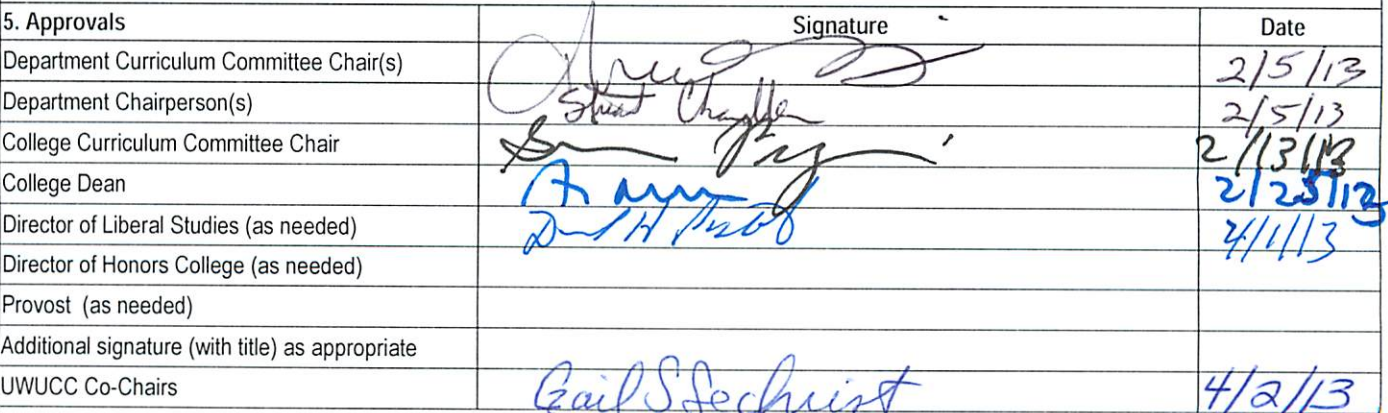 5. Approvals Signature Date
Department Curriculum Committee Chair(s) 2/5/13
Department Chairperson(s) Stuart 2/5/13
College Curriculum Committee Chair 2/13/13
College Dean 2/25/13
Director of Liberal Studies (as needed) 4/1/13
Director of Honors College (as needed)
Provost (as needed)
Additional signature (with title) as appropriate
UWUCC Co-Chairs Gail S Sechrist 4/2/13